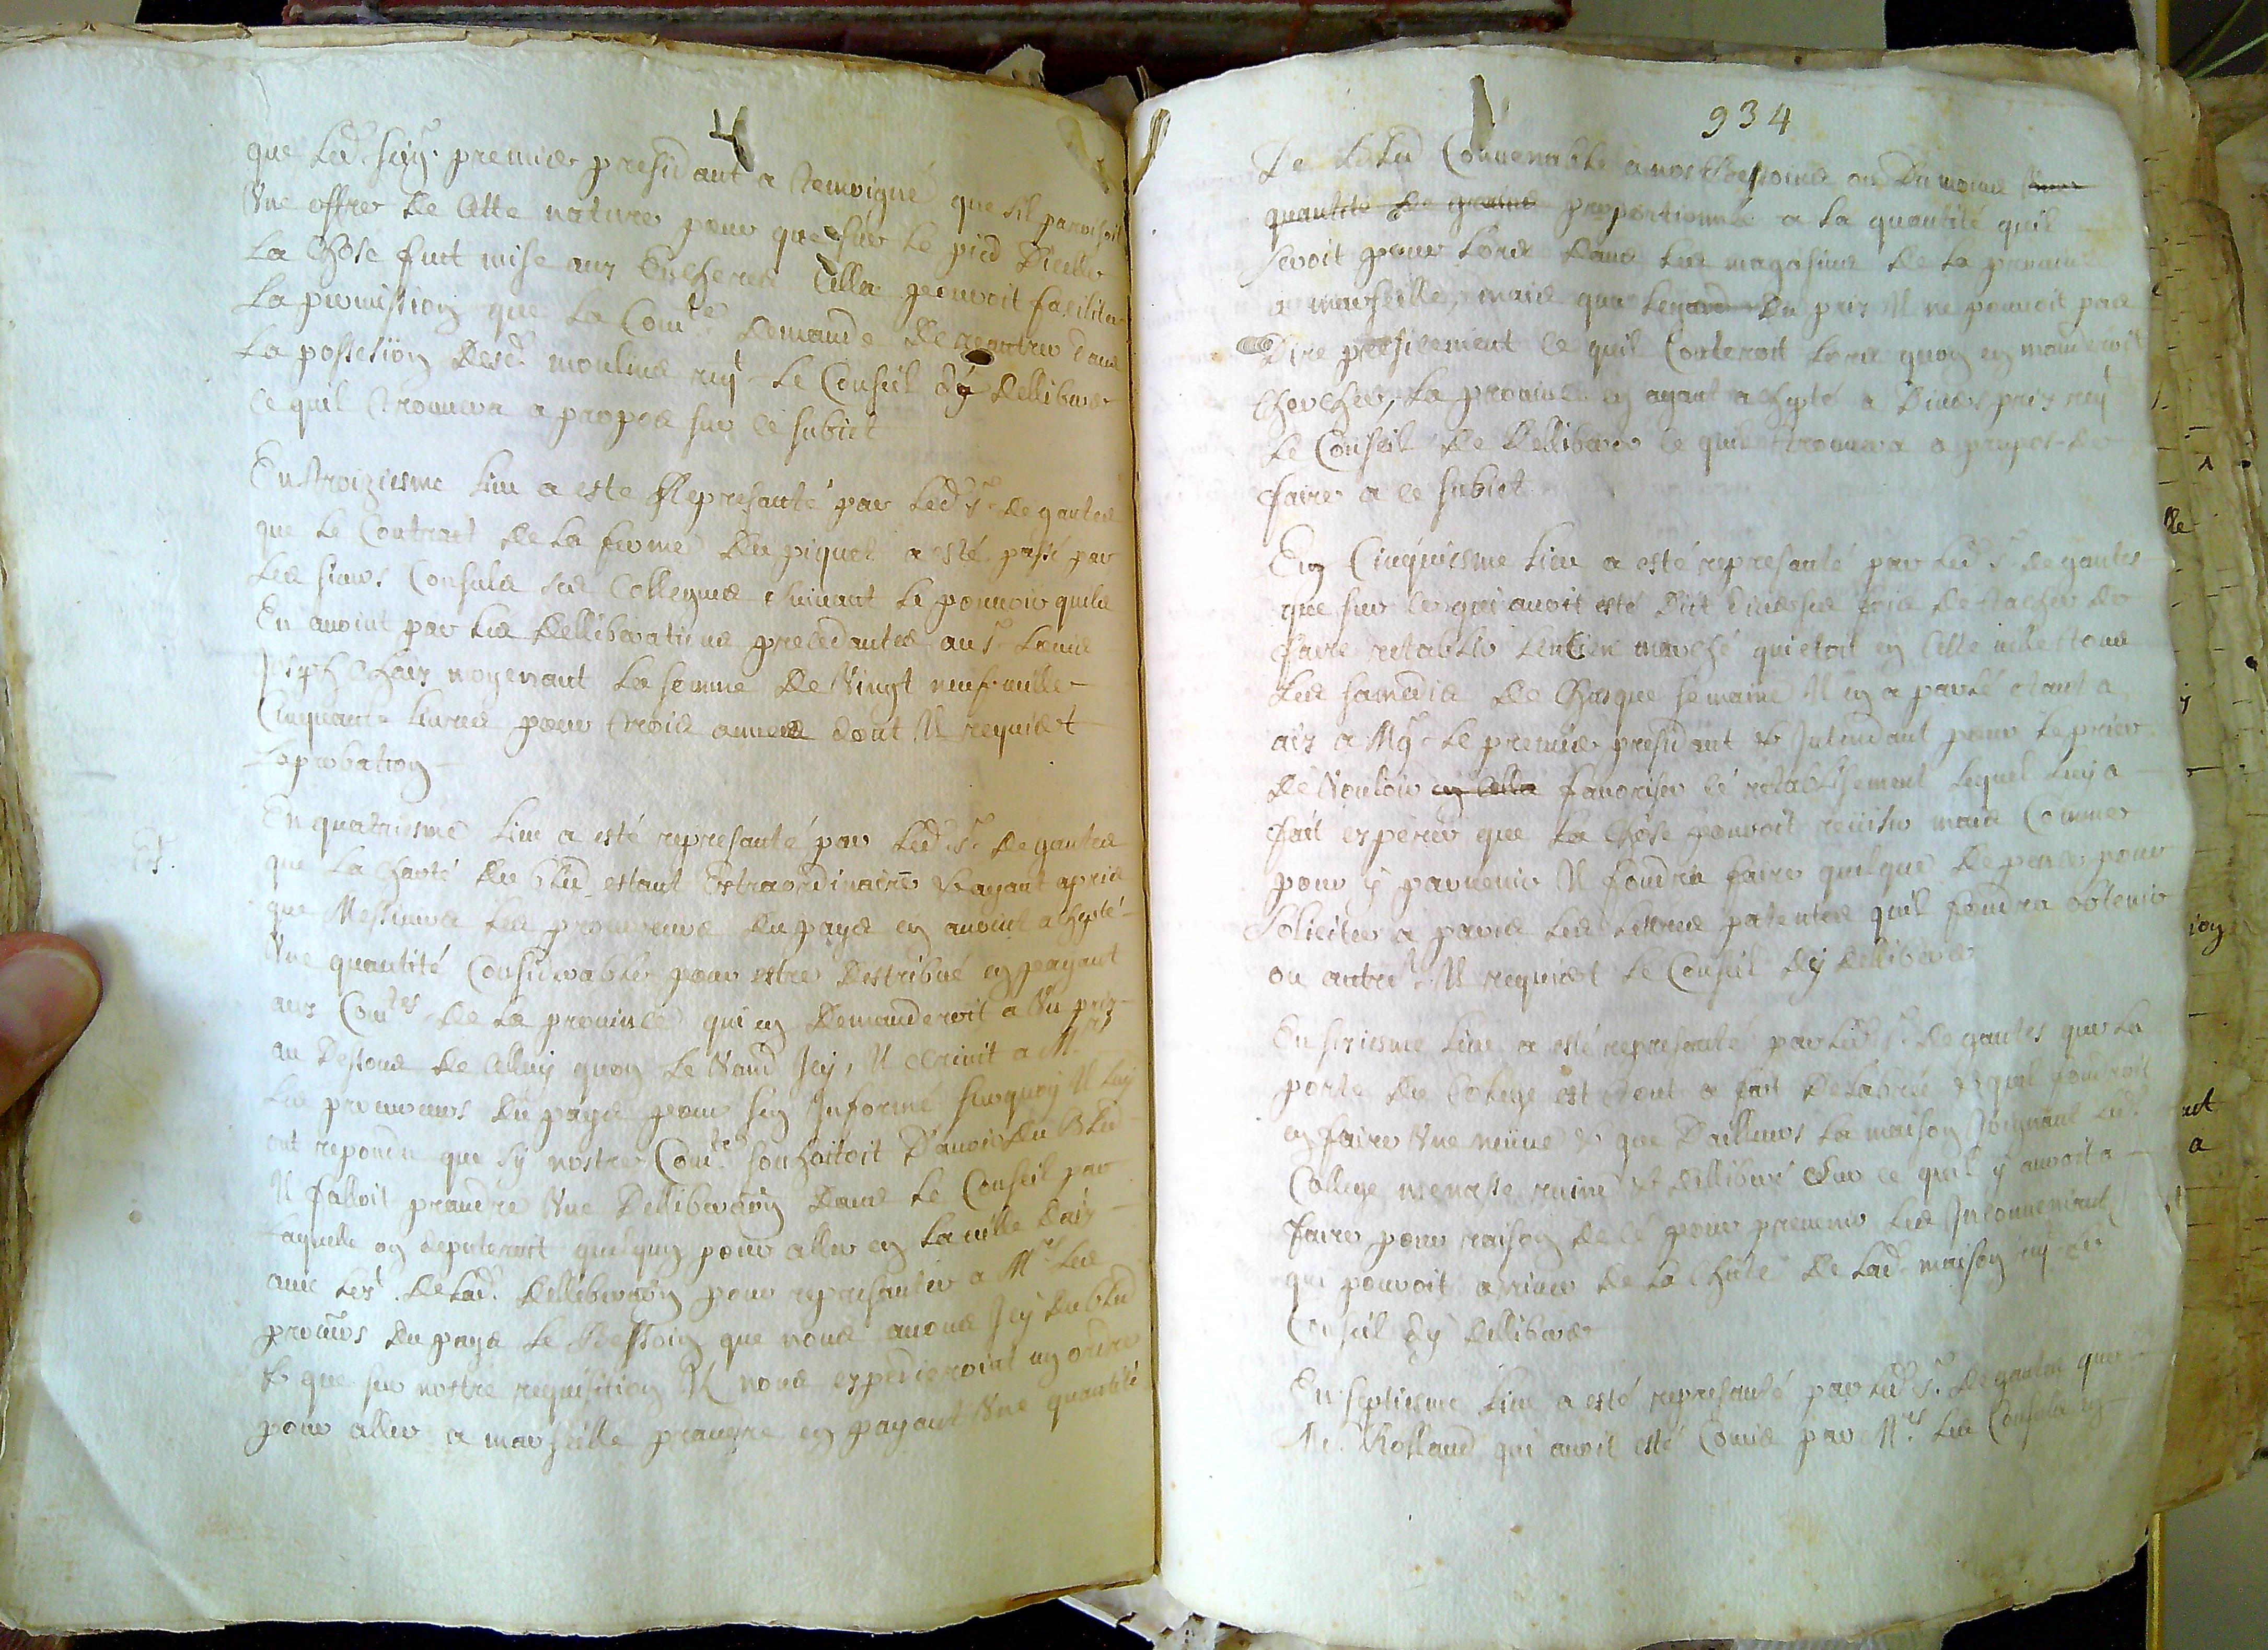 que led. seigr. premier presidant a temoigné que sil paroissoit
Une offre de cette nature pour que sur le pied dicelle
La Chose fut mise aux Encheres Cella pouvoit faciliter
La permission que La Comté demande de rentrer dans
La possesion desd. moulins reqt Le Conseil dy delliberer
Ce quil trouvera a propos sur ce subiet
En troiziesme Lieu a esté Represanté par Led. Sr. de gantes
que Le Contract de La ferme du piquet a esté passé par
Les sieurs Consuls ses Collegues suivant Le pouvoir quils
En avoint par Les delliberations precedantes au Sr. Louis
Joseph Chaix moyenant La somme de Vingt neuf mille
Cinquante Livres pour trois années dont Il requiert
Laprobation
En quatriesme Lieu a esté represanté par Led. Sr. de gantes
que La charté du bled estant Extraordinaire & ayant apris
que Messieurs Les procureurs du pays en avoint achepté
Une quantité Considerable pour estre distribué en payant
aux Comtes de La province qui en demanderoit a Un prix
au dessous de Celluy quon Le Vand Icy, Il escrivit a Mrs
Les procureurs du pays pour sen Informé surquoy Il Luy
ont repondu que sy nostre Comté souhaitoit D'avoir du Bled
Il falloit prandre Une Delliberaon dans Le Conseil par
Laquelle on deputeroit quelquun pour aller en La ville daix
avec Lext. de Lad. delliberaon pour represanter a Mrs Les
procurs du pays Le Bessoin que nous avons Icy du bled
& que sur nostre requisition Il nous expedieroint un ordre
pour aller a marseille prandre en payant Une quantité
934
De bled Convenable a nos Bessoins ou du moins
quantité de grains proportionnée a La quantité quil
seroit pour Lors dans Les magasins de La province
a marseille, mais que Legard du prix Il ne pouvoit pas
Dire presisement ce quil Couteroit Lors quon en manderoit
Chercher, La province en ayant achepté a Divers prix reqt
Le Conseil de delliberer ce quil trouvera a propos de
faire a ce subiet
En Cinquiesme Lieu a esté represanté par Led. Sr. de gantes
que sur ce qui avoit esté Dict diverses fois de tacher de
faire retablir Lentien marché qui etoit en cette ville tous
Les samedis de Chasque semaine Il en a parlé etant a
aix a Mgr Le premier presidant & Intendant pour Le prier
de Vouloir en cella favoriser cé retablissement Lequel Luy a
fait esperer que La Chose pouvoit reüissir mais Comme
pour y parvenir Il foudra faire quelque depence pour
Soliciter a paris Les Lettres patentes quil foudra obtenir
ou autret Il requiert Le Conseil dy delliberer
En sixiesme Lieu a esté represanté par Led. Sr. de gantes que La
porte du Colege est tout a fait delabrée & quil foudroit
en faire Une neuve & que Dailleurs La maison Joignant Led.
College menasse ruine & delliberé sur ce quil y auroit a
faire pour raison de cé pour prevenir Les Inconveniant
qui pouvoit arriver de La Chute de Lad. maison reqt Le
Conseil dy delliberer
En septiesme Lieu a esté represanté par Led. Sr. de gantes que
Me. Rolland qui avoit esté Comis par Mrs Les Consuls en